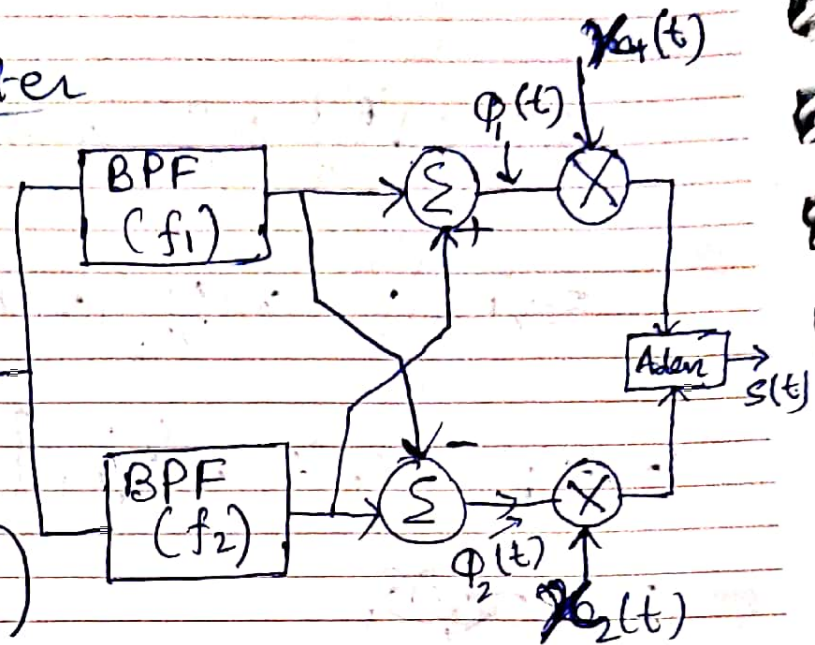 ter
φ₁(t)
(t)
BPF
(f₁)
Σ
X
+
Adder
S(t)
BPF
(f₂)
-
Σ
X
φ₂(t)
₂(t)
)